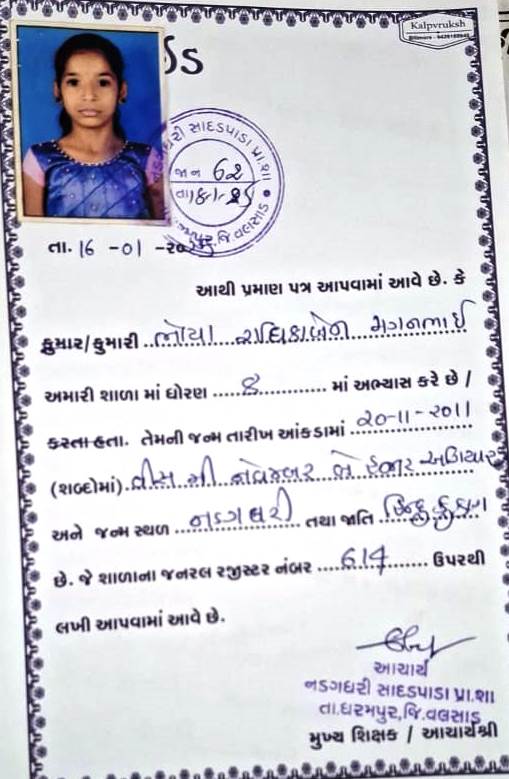 Kalpvruksh
નડગધરી સાદડપાડા પ્રા.શા
જા નં 62
તા.
જિ.વલસાડ
તા. 16 -01 -20
આથી પ્રમાણ પત્ર આપવામાં આવે છે. કે
કુમાર/કુમારી ..ભોયા રાધિકાબેન મગનભાઈ
અમારી શાળા માં ધોરણ ......8............ માં અભ્યાસ કરે છે /
કરતા હતા. તેમની જન્મ તારીખ આંકડામાં 20-11-2011
(શબ્દોમાં)..વીસ મી નવેમ્બર બે હજાર અગિયાર
અને જન્મ સ્થળ ..નડગધરી.. તથા જાતિ હિન્દુ કુકણા
છે. જે શાળાના જનરલ રજીસ્ટર નંબર .....614....... ઉપરથી
લખી આપવામાં આવે છે.
આચાર્ય
નડગધરી સાદડપાડા પ્રા.શા
તા.ધરમપુર,જિ.વલસાડ
મુખ્ય શિક્ષક / આચાર્યશ્રી